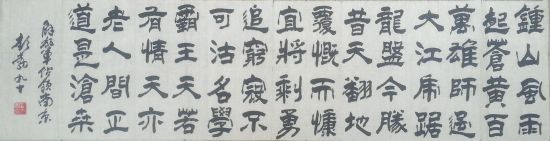 鍾山風雨
起蒼黃百
萬雄師過
大江虎踞
龍盤今勝
昔天翻地
覆慨而慷
宜將剩勇
追窮寇不
可沽名學
霸王天若
有情天亦
老人間正
道是滄桒
解放軍佔領南京
九十